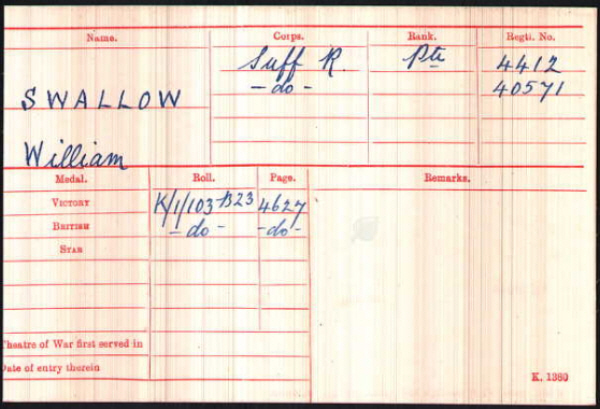 Name. Corps. Rank. Regtl. No.
Suff R. Pte 4412
- do - 40571
SWALLOW
William
Medal. Roll. Page. Remarks.
VICTORY K/1/103 B23 4627
BRITISH - do - -do-
STAR
Theatre of War first served in
Date of entry therein
K. 1380